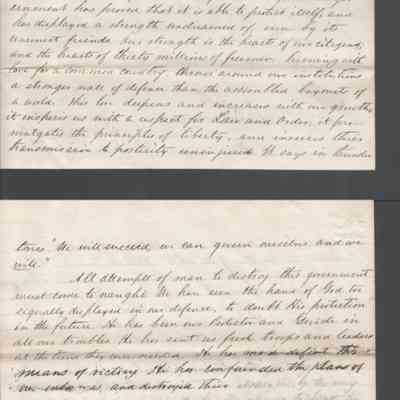 ernment has proved that it is able to protect itself, and
has displayed a strength undreamed of, even by its
warmest friends. Our strength is the hearts of our citizens;
and the hearts of thirty millions of freemen burning with
love for a common country throws around our institutions
a stronger wall of defence than the assembled bayonets of
a world. This love deepens and increases with our growth
it inspires us with a respect for Law and Order, it pro
mulgates the principles of liberty, and insures their
transmission to posterity unimpaired. It says in thunder
tones "We will succeed we can govern ourselves and we
will."
All attempts of man to destroy this government
must come to naught. We have seen the hand of God too
signally displayed in our defence, to doubt His protection
in the future. He has been our Protector and Guide in
all our troubles. He has sent us fresh troops and leaders
at the times they were needed. He has made defeat the
means of victory. He has confounded the plans of
our enemies, and destroyed their